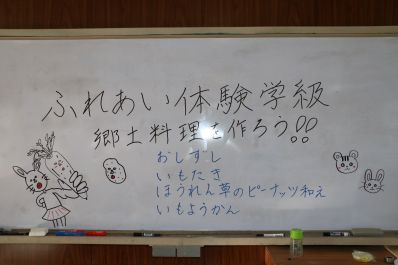 ふれあい体験学級
郷土料理を作ろう!!
おしずし
いもたき
ほうれん草のピーナッツ和え
いもようかん